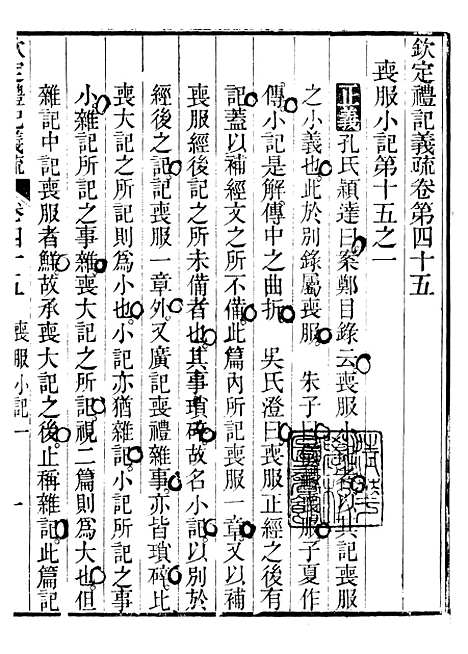 欽定禮記義疏卷第四十五
喪服小記第十五之一
正義孔氏穎達曰案鄭目錄云喪服小記者以其記喪服
之小義也此於別錄屬喪服 朱子曰 喪服子夏作
傳小記是解傳中之曲折 吳氏澄曰喪服正經之後有
記蓋以補經文之所不備此篇內所記喪服一章又以補
喪服經後記之所未備者也其事瑣碎故名小記以別於
經後之記喪服一章外又廣記喪禮雜事亦皆瑣碎比
喪大記之所記則為小也小記亦猶雜記小記所記之事
小雜記所記之事雜喪大記之所記視二篇則為大也但
雜記中記喪服者鮮故承喪大記之後止稱雜記此篇記
欽定禮記義疏 卷四十五 喪服小記一 一